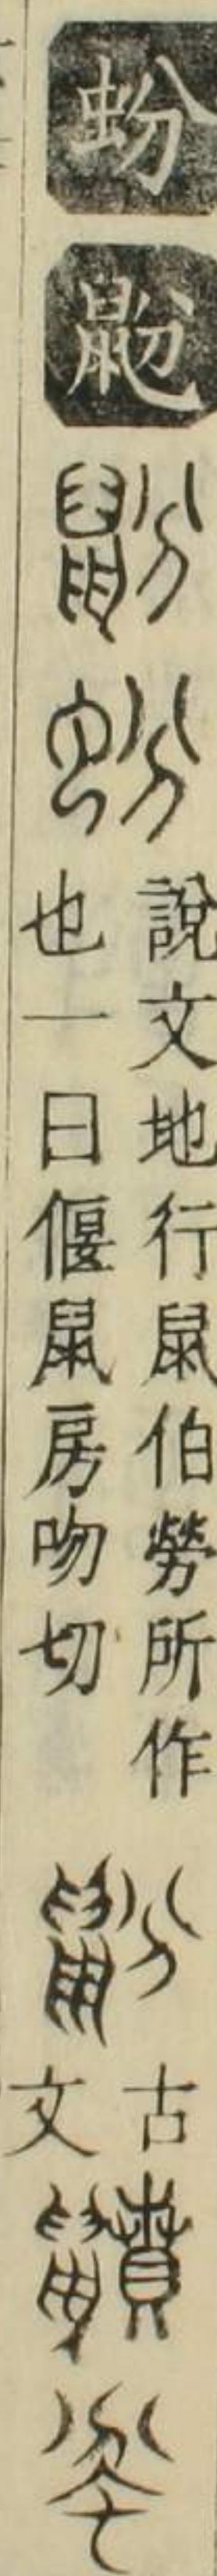 蚡
鼢
鼢
蚡
說文地行鼠伯勞所作
也一曰偃鼠房吻切
鼢
古
文